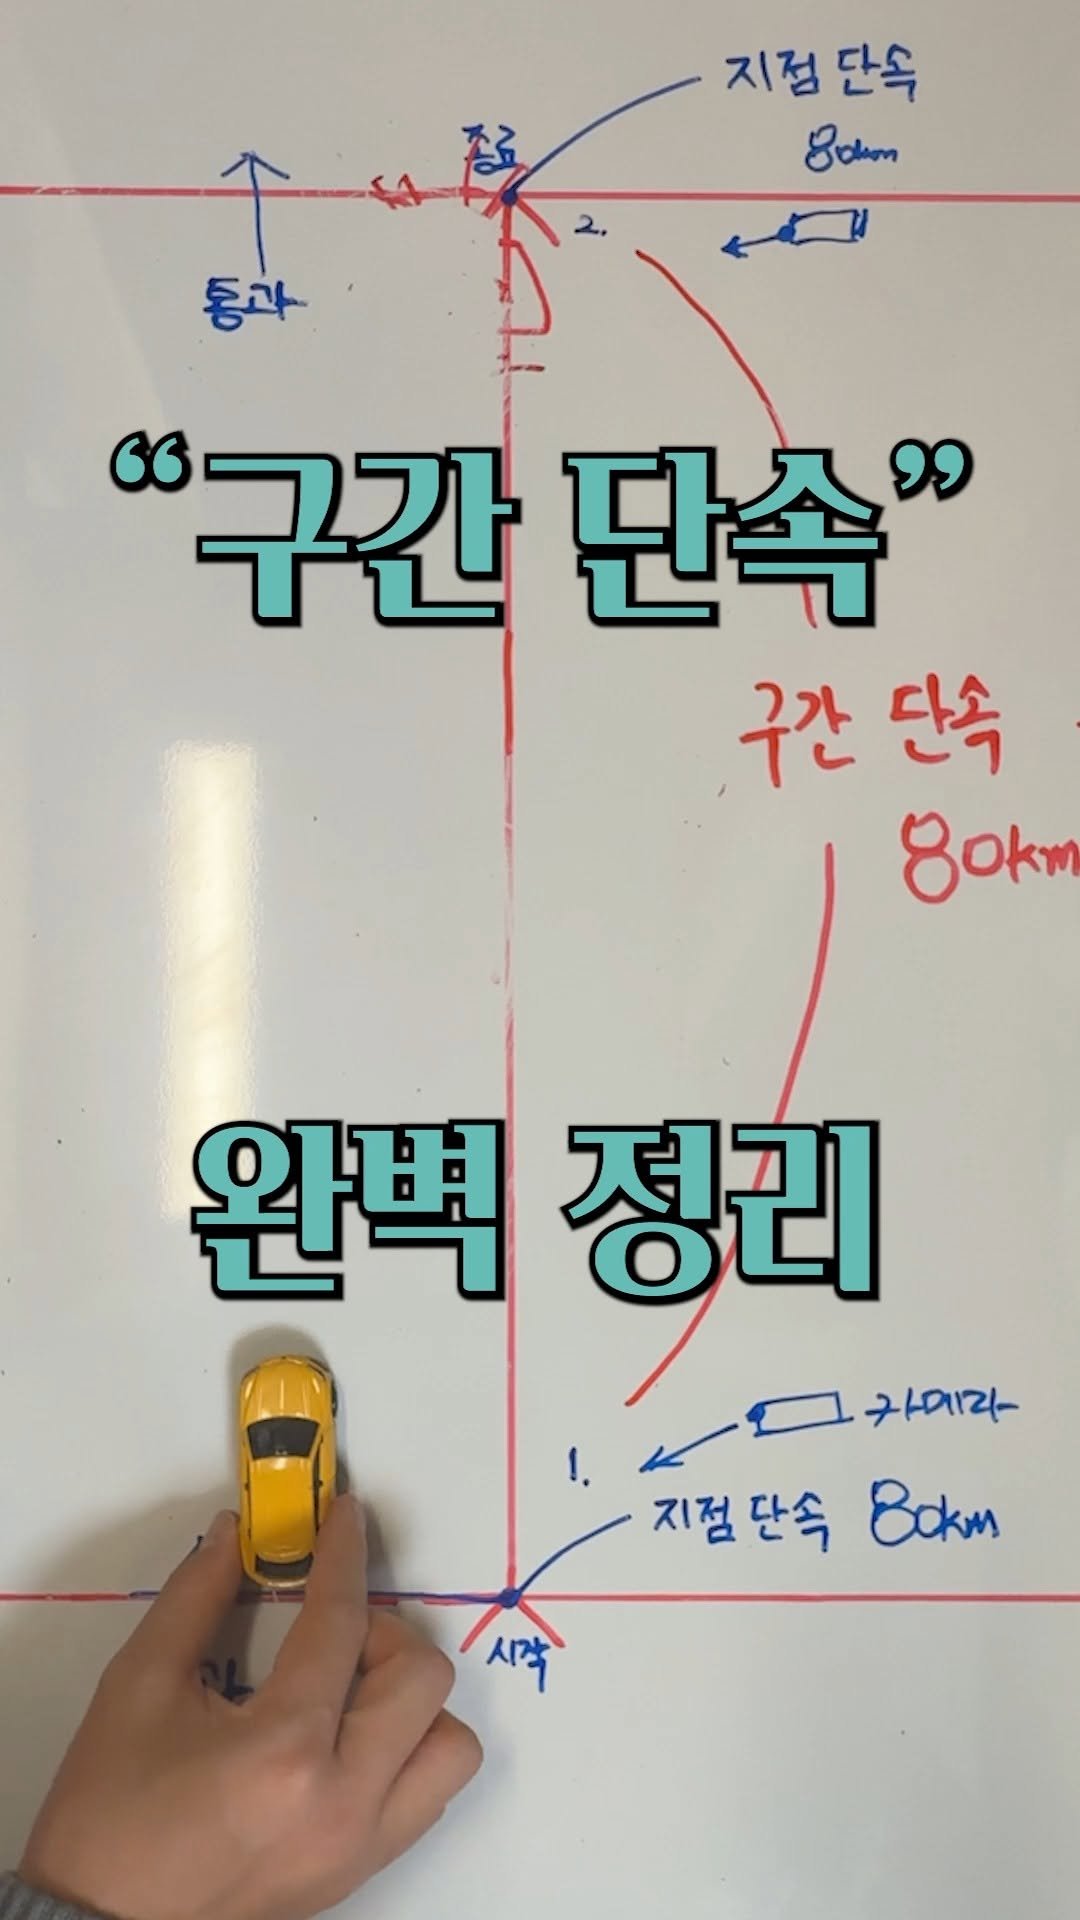 지점 단속
종료
80km
2.
통과
“구간 단속”
구간 단속
80km
완벽 정리
카메라
1.
지점 단속 80km
시작